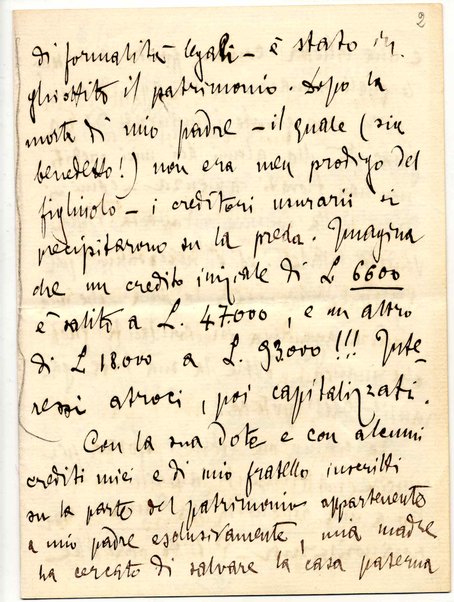 2
di formalità legali – è stato in
ghiottito il patrimonio. Dopo la
morte di mio padre – il quale (sia
benedetto!) non era men prodigo del
figliuolo – i creditori usurarii si
precipitarono su la preda. Imagina
che un credito iniziale di L 6600
è salito a L. 47.000, e un altro
di L 18.000 a L. 93.000!!! Inte-
ressi atroci, poi capitalizzati.
Con la sua dote e con alcuni
crediti miei e di mio fratello inscritti
su la parte del patrimonio appartenente
a mio padre esclusivamente, mia madre
ha cercato di salvare la casa paterna